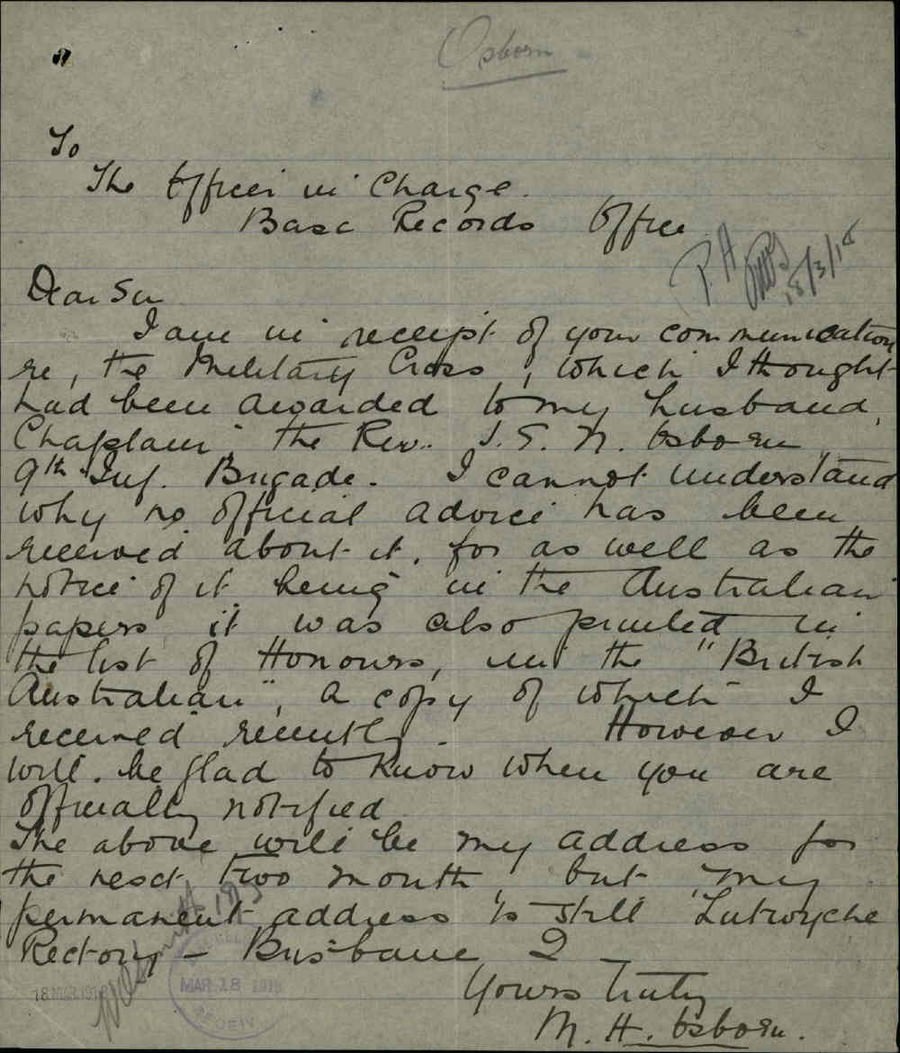 Osborn
To
The Officer in Charge.
Base Records Office
P.A
18/3/18
Dear Sir
I am in receipt of your communication
re, the Military Cross, which I thought
had been awarded to my husband,
Chaplain the Rev. J. S. N. Osborn
9th Inf. Brigade. I cannot understand
why no official advice has been
received about it, for as well as the
notice of it being in the Australian
papers it was also printed in
the list of Honours, in the "British
Australian", a copy of which I
received recently. However I
will be glad to know when you are
officially notified
The above will be my address for
the next two month, but my
permanent address is still Lutwyche
Rectory - Brisbane Q
Yours truly
M. H. Osborn.
18 MAR 1918
MAR 18 1918